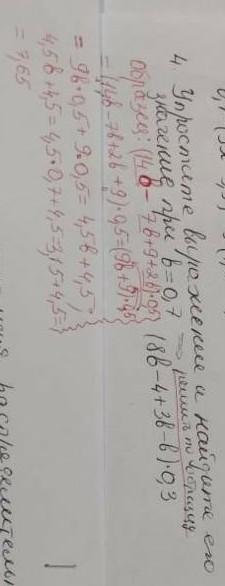 4. Упростите выражение и найдите его
значение при b = 0,7 ⇒ решить по образцу
(8b - 4 + 3b - b) · 0,3
Образец: (14b - 7b + 9 + 2b) · 0,5
= (14b - 7b + 2b + 9) · 0,5 = (9b + 9) · 0,5
= 9b · 0,5 + 9 · 0,5 = 4,5b + 4,5;
4,5b + 4,5 = 4,5 · 0,7 + 4,5 = 3,15 + 4,5 =
= 7,65